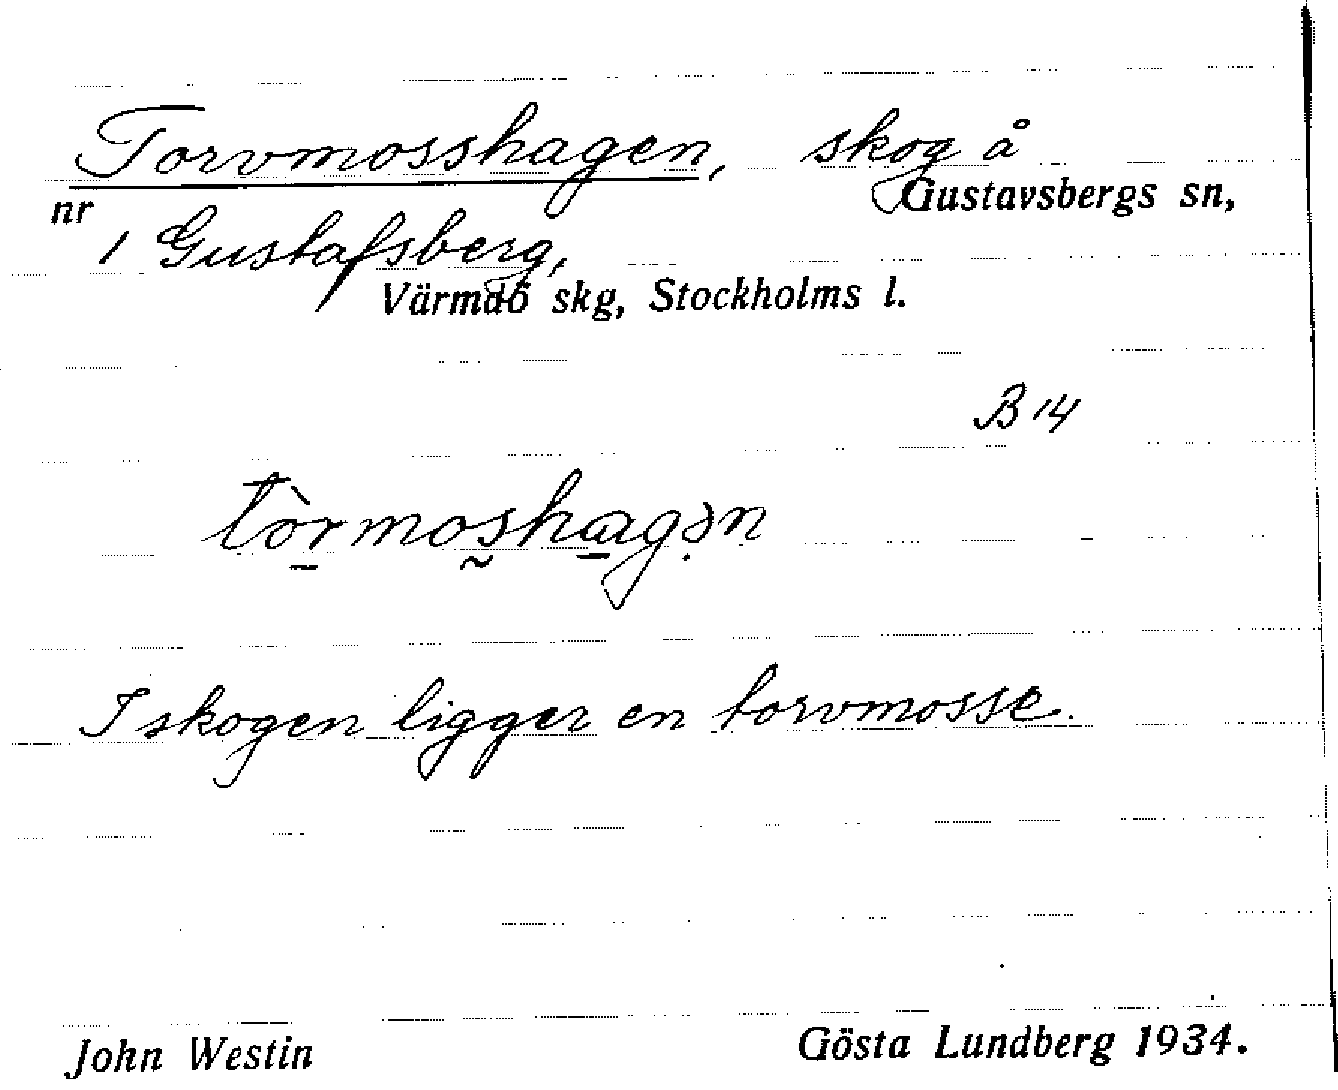 Torvmosshagen, skog å
Gustavsbergs sn,
nr 1 Gustafsberg,
Värmdö skg, Stockholms l.
B 14
tòrmoshagən
I skogen ligger en torvmosse.
John Westin Gösta Lundberg 1934.